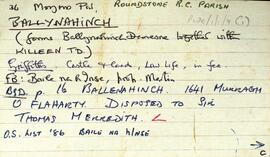 36 Moyrus Ph., ROUNDSTONE R.C. PARISH
BALLYNAHINCH
(forms Ballynahinch Demesne together with
KILLEEN TD.)
Griffiths. Castle & land, Law Life, in fee.
FB: Baile na hInse, Arch. Martin
BSD. p. 16 BALLENAHINCH. 1641 MURRAGH
O FLAHARTY. DISPOSED TO SIR
THOMAS MERREDITH.
O.S. LIST '86 BAILE NA HINSE